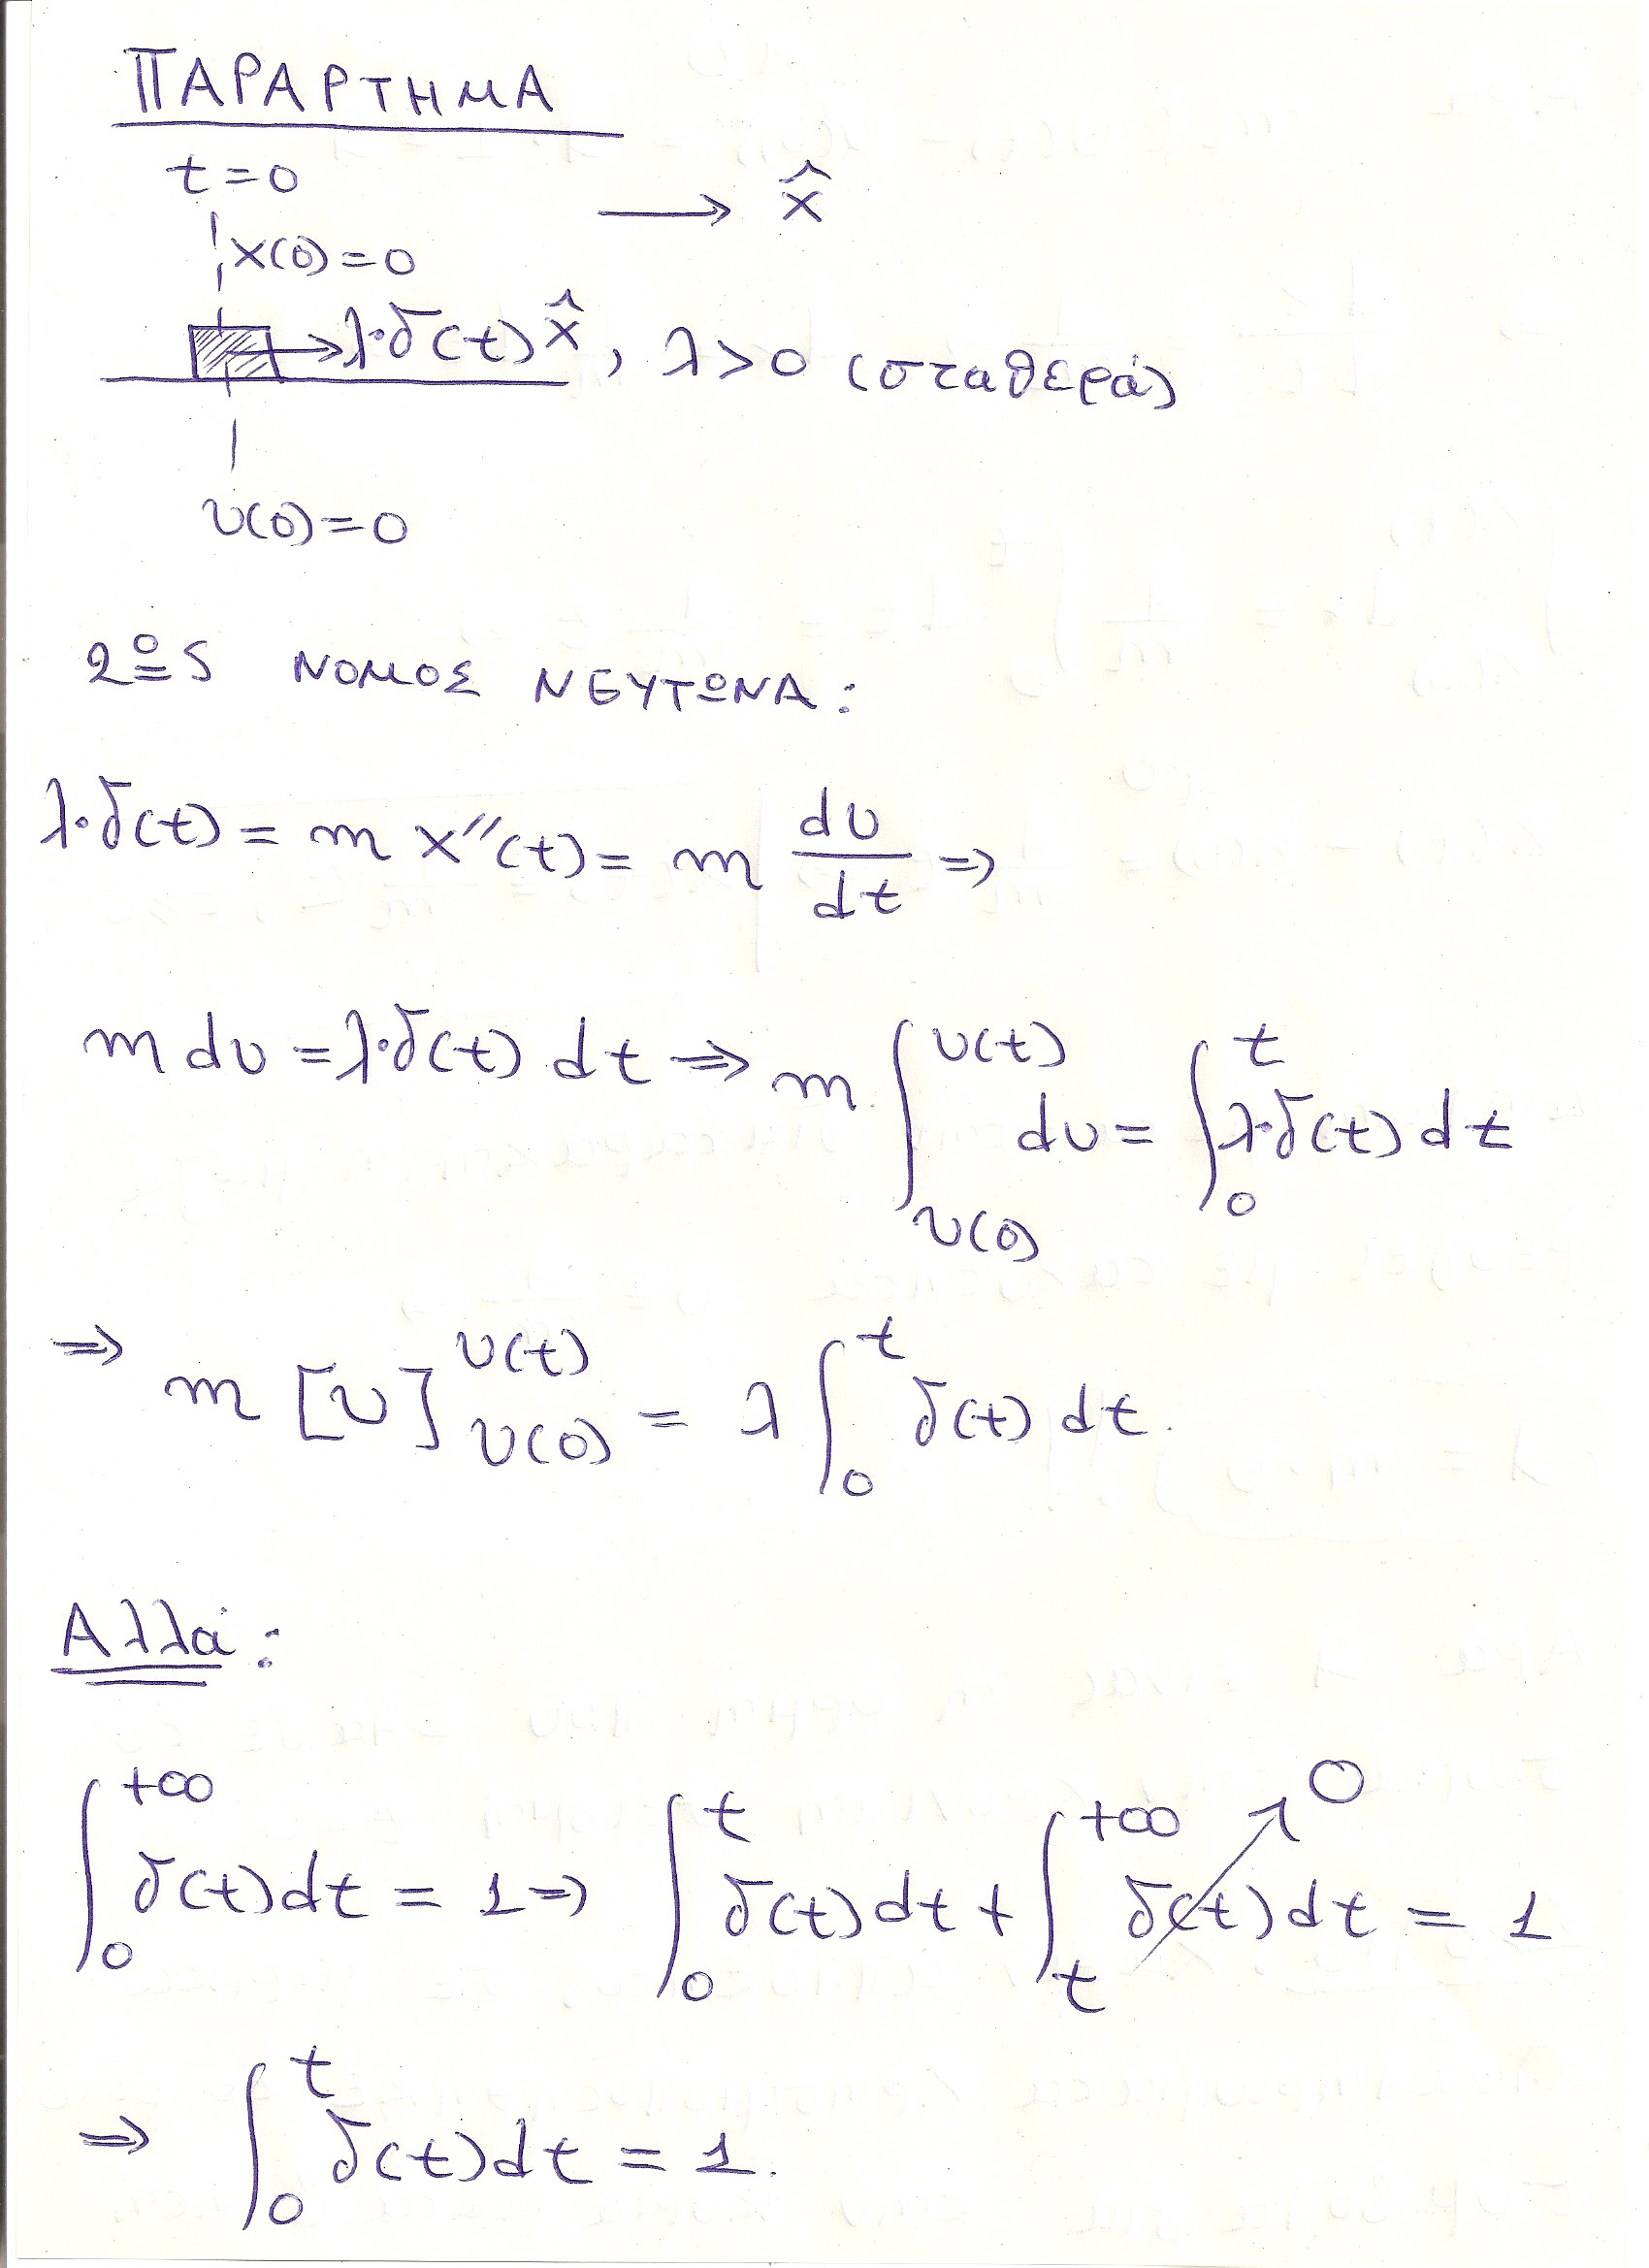 ΠΑΡΑΡΤΗΜΑ
t=0
→ x̂
x(0)=0
λ·δ(t)x̂, λ>0 (σταθερά)
υ(0)=0
2ος ΝΟΜΟΣ ΝΕΥΤΩΝΑ:
λ·δ(t) = m x''(t) = m dυ/dt ⇒
m dυ = λ·δ(t) dt ⇒ m ∫_{υ(0)}^{υ(t)} dυ = ∫_0^t λ·δ(t) dt
⇒ m [υ]_{υ(0)}^{υ(t)} = λ ∫_0^t δ(t) dt.
Αλλά:
∫_0^{+∞} δ(t)dt = 1 ⇒ ∫_0^t δ(t)dt + ∫_t^{+∞} δ(t)dt = 1
0
⇒ ∫_0^t δ(t)dt = 1.